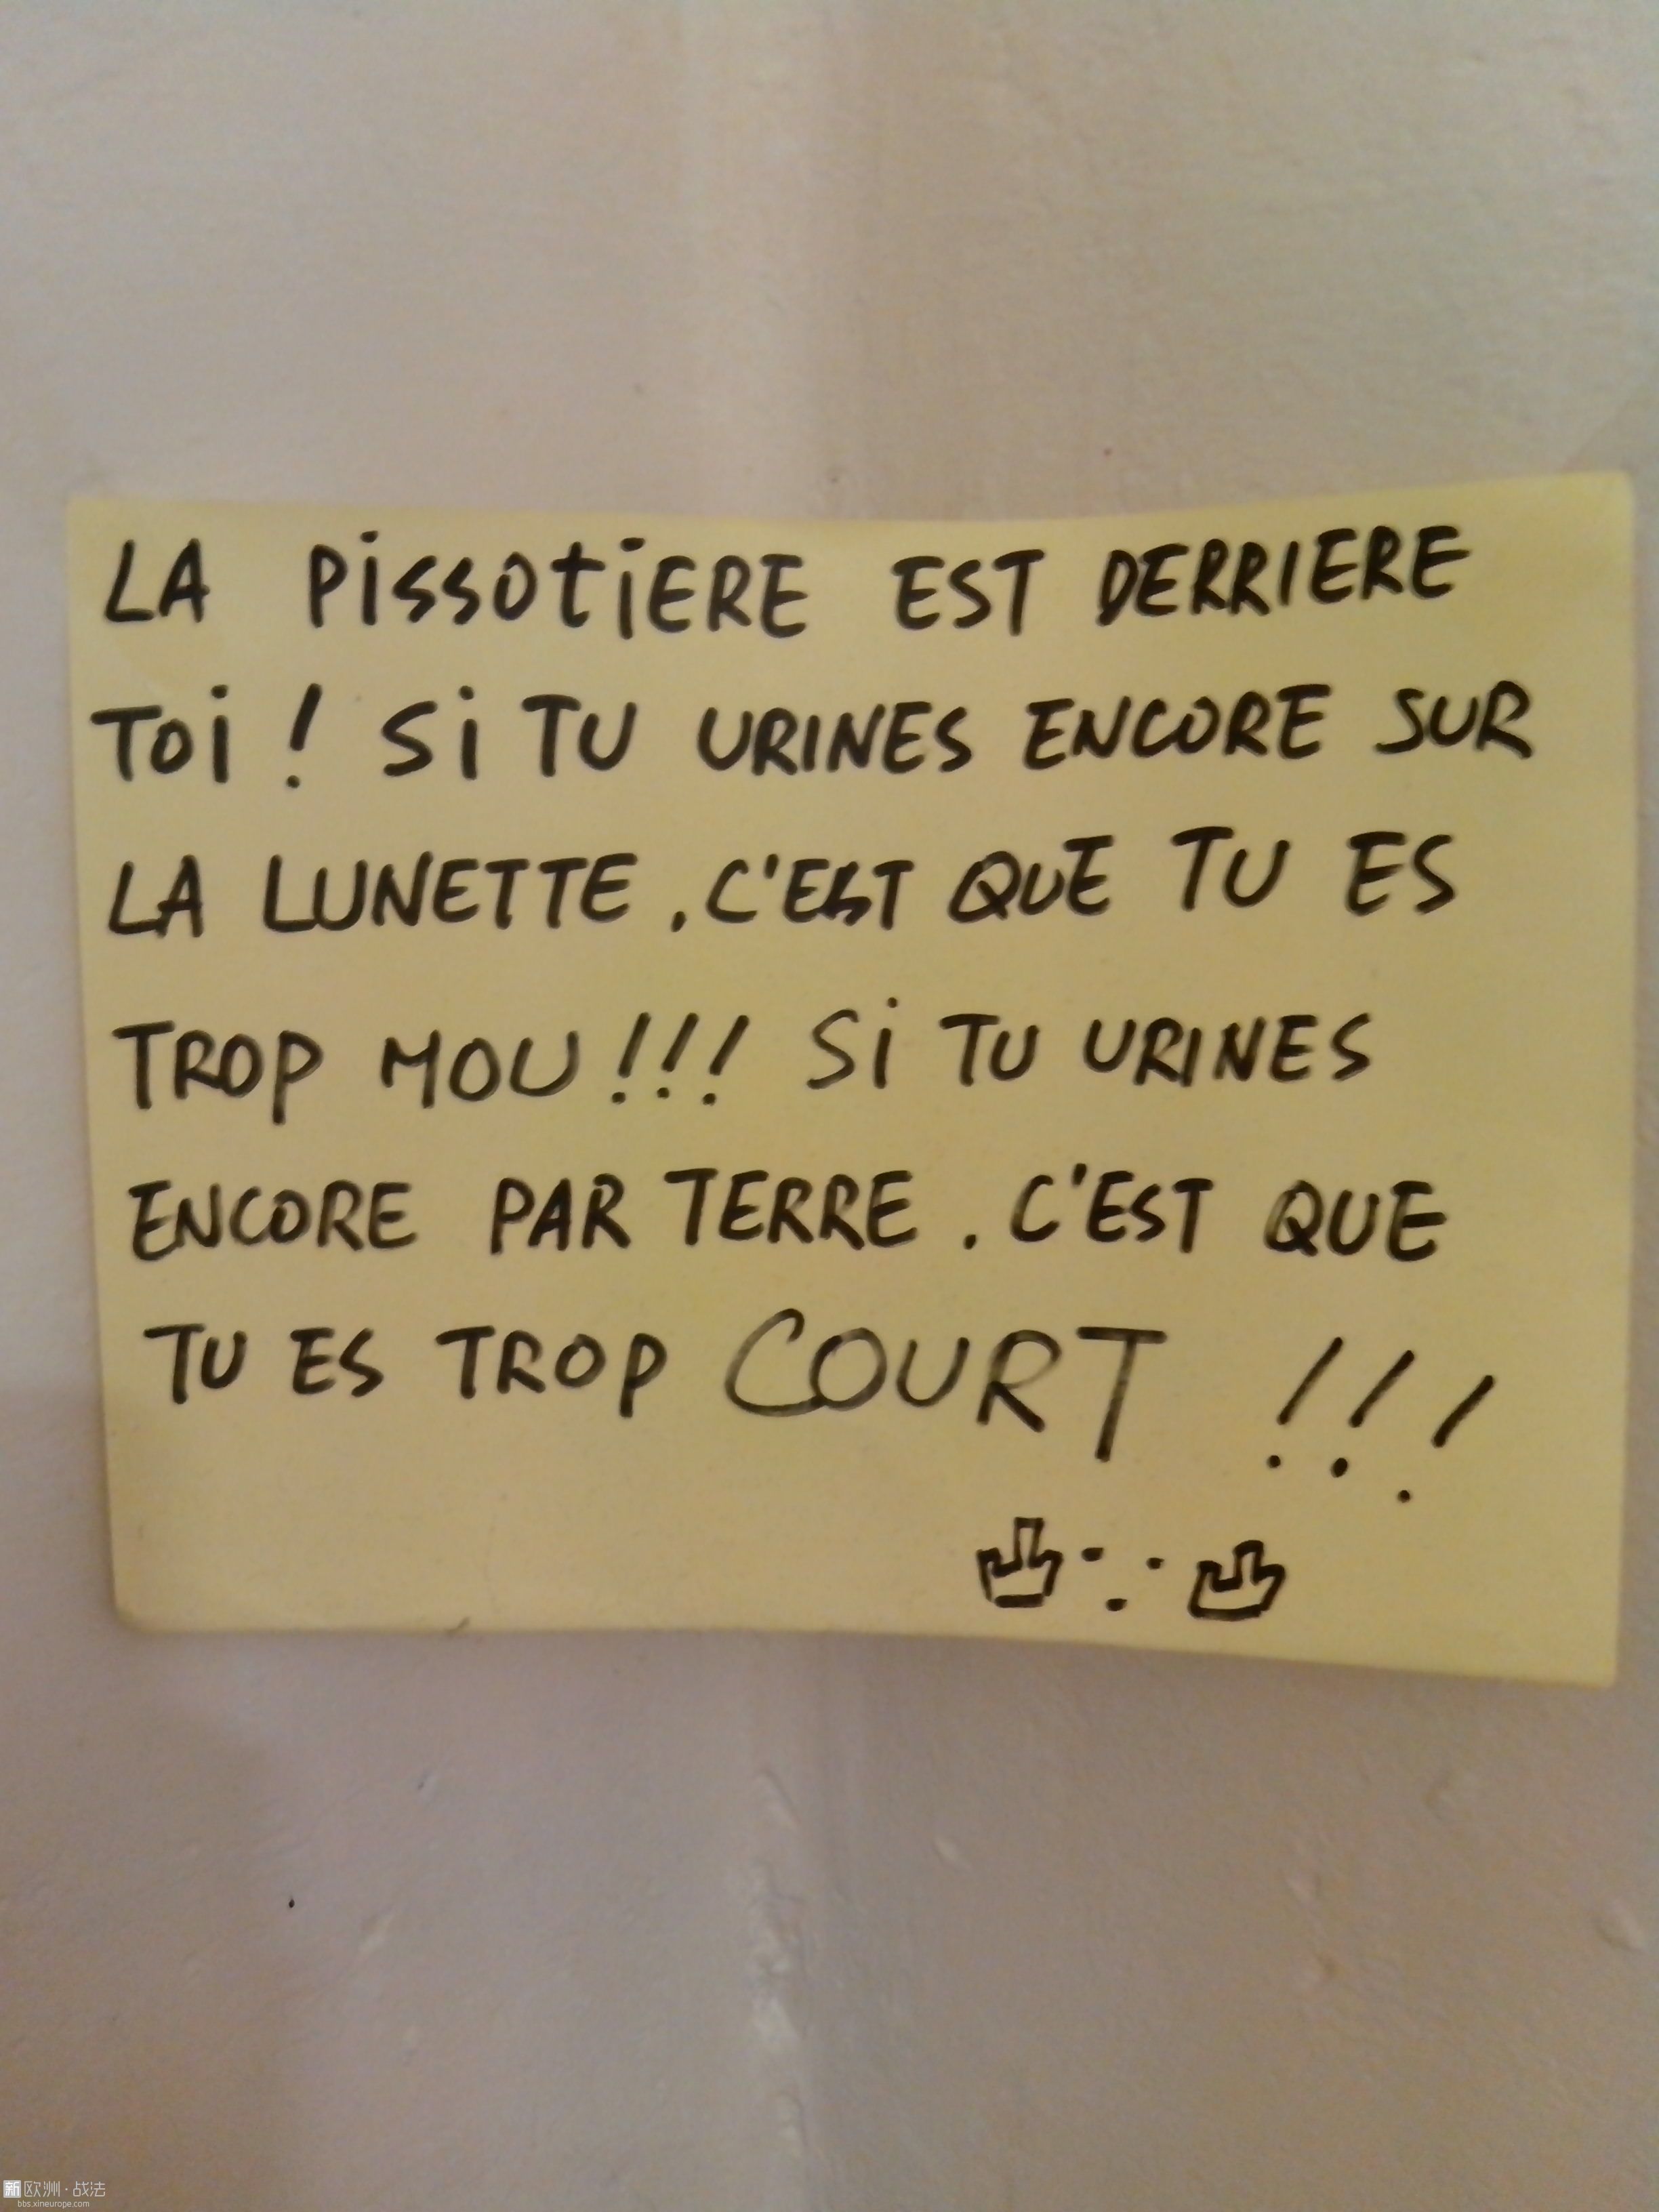 LA PiSSOtiERE EST DERRIERE
TOi ! Si TU URINES ENCORE SUR
LA LUNETTE . C'EST QUE TU ES
TROP MOU !!! Si TU URINES
ENCORE PAR TERRE . C'EST QUE
TU ES TROP COURT !!!
新欧洲·战法
bbs.xineurope.com